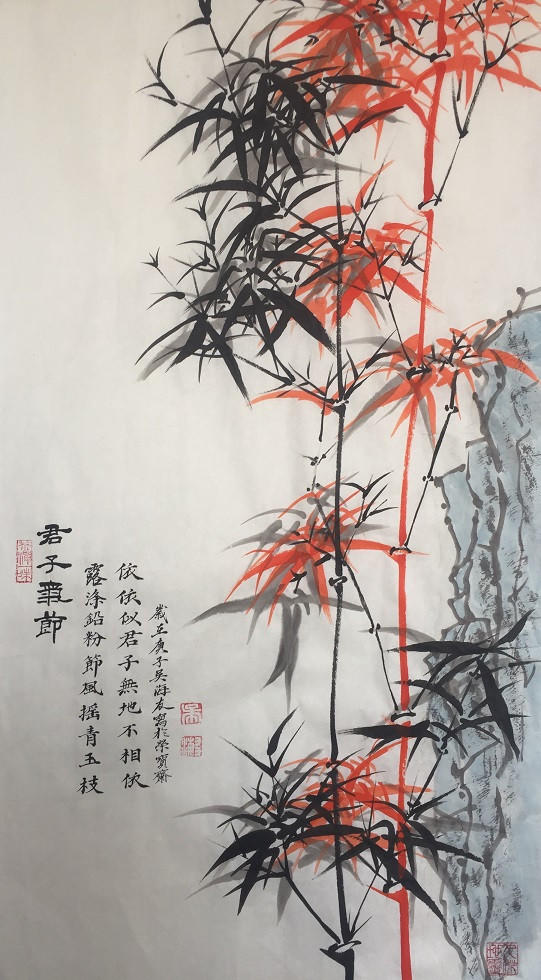 君子氣節
露滌鉛粉節風搖青玉枝
依依似君子無地不相依
歲在庚子吳海友寫於榮寶齋